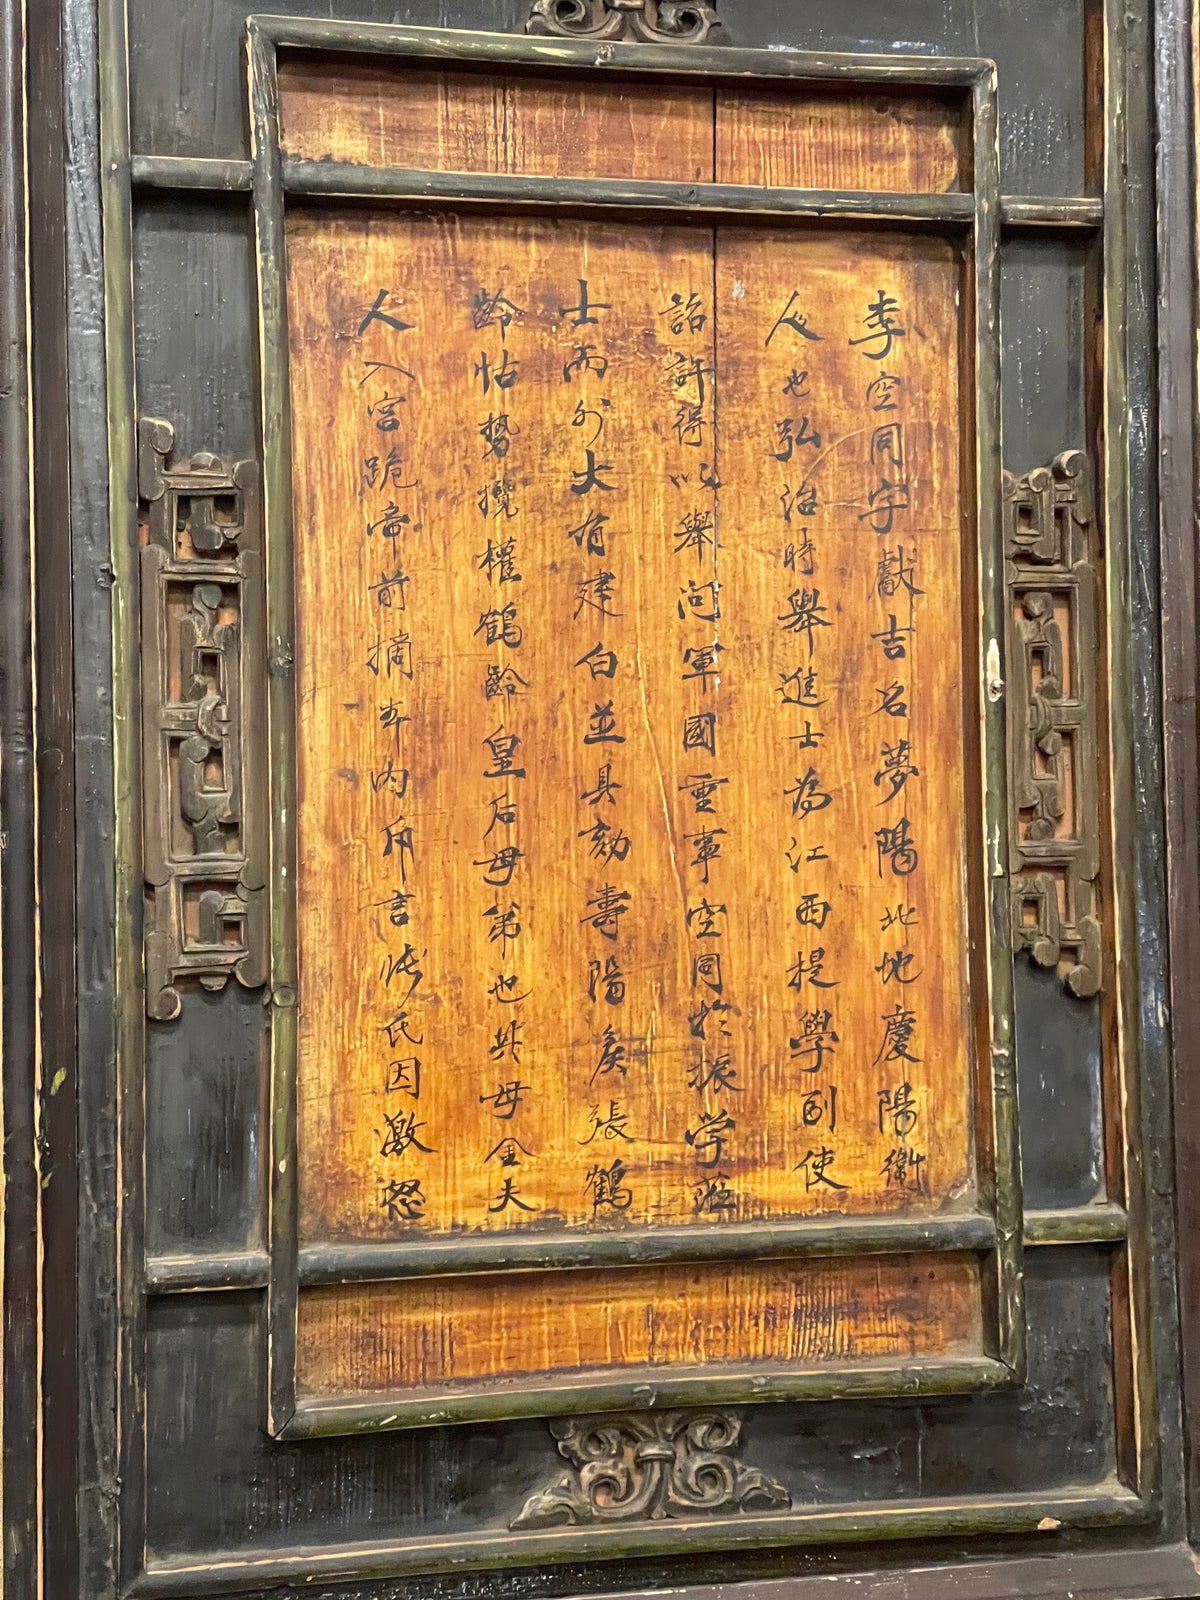 李空同字獻吉名夢陽北地慶陽衛
人也弘治時舉進士為江西提學副使
詔許得以舉問軍國重事空同於振学
士兩外大有建白並具劾壽陽矦張鶴
齡怙勢攬權鶴齡皇后母弟也其母金夫
人入宮跪帝前摘本內斥言張氏因激怒